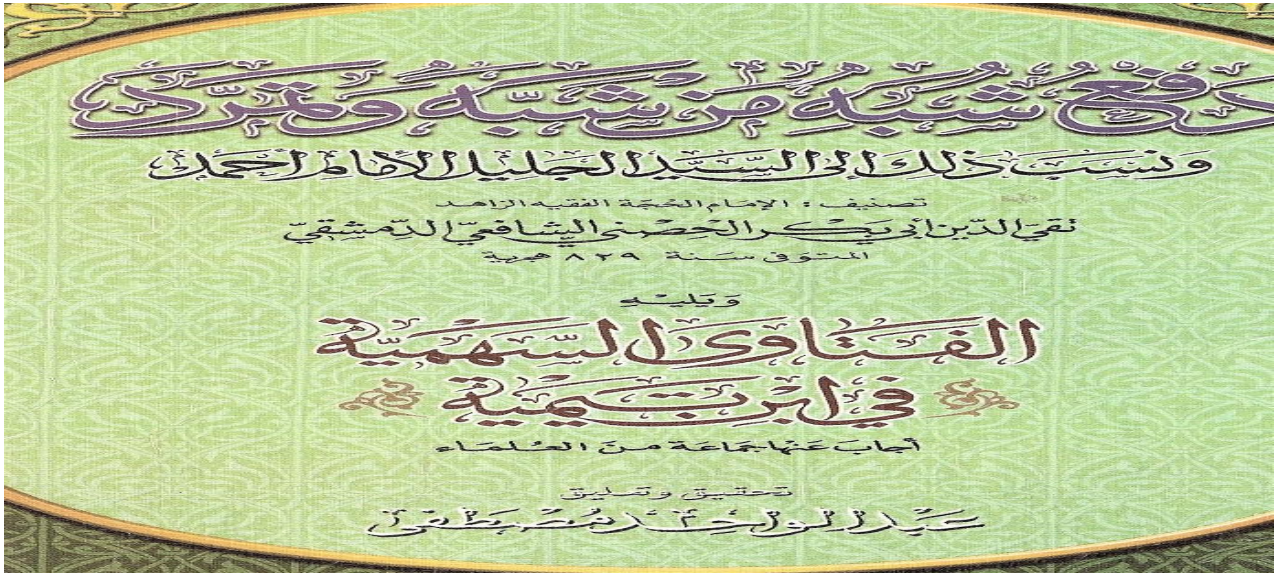 دفع شبه من شبّه وتمرّد
ونسب ذلك إلى السيّد الجليل الإمام أحمد
تصنيف : الإمام الحجة الفقيه الزاهد
تقيّ الدّين أبي بكر الحصني الشافعيّ الدّمشقيّ
المتوفى سنة ٨٢٩ هجرية
ويليه
الفتاوى السّهميّة
في ابن تيمية
أجاب عنها جماعة من العلماء
تحقيق وتعليق
عبد الواحد مصطفى